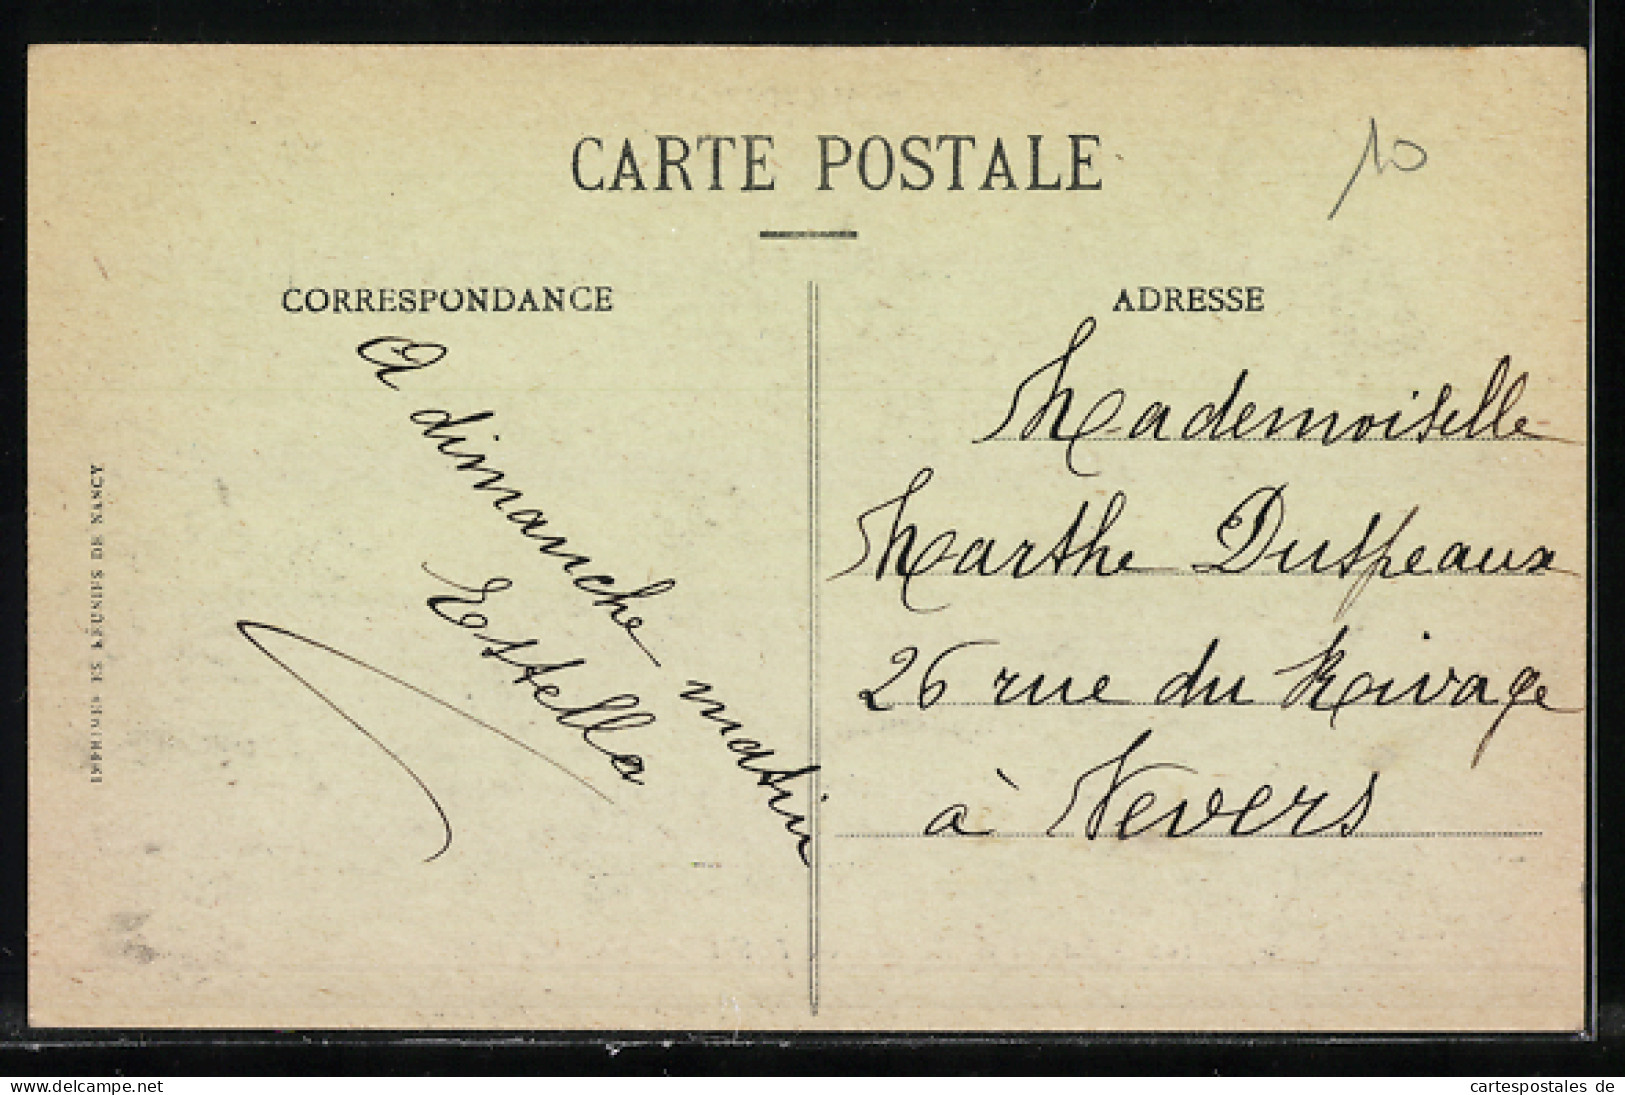 CARTE POSTALE
10
CORRESPONDANCE
A dimanche matin
Estella
ADRESSE
Mademoiselle
Marthe Duspeaux
26 rue du Rivage
à Nevers
IMPRIMERIES RÉUNIES DE NANCY
www.cartespostales.eu
cartespostales de